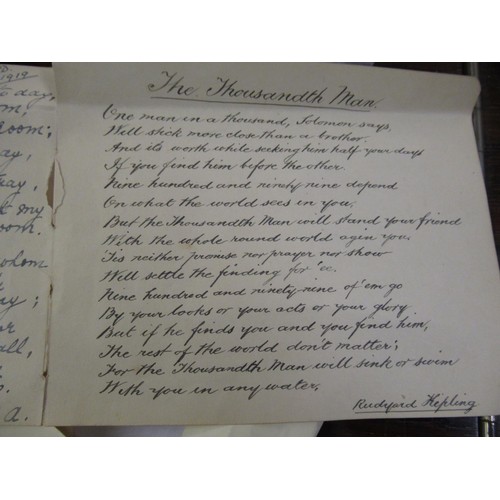 1919
to day,
room;
ay,
my
room.
whom
;
all,
a.
The Thousandth Man.
One man in a thousand, Solomon says,
Will stick more close than a brother.
And its worth while seeking him half your days
If you find him before the other.
Nine hundred and ninety-nine depend
On what the world sees in you,
But the Thousandth Man will stand your friend
With the whole round world agin you.
Tis neither promise nor prayer nor show
Will settle the finding for 'ee.
Nine hundred and ninety-nine of 'em go
By your looks or your acts or your glory
But if he finds you and you find him,
The rest of the world don't matter;
For the Thousandth Man will sink or swim
With you in any water.
Rudyard Kipling